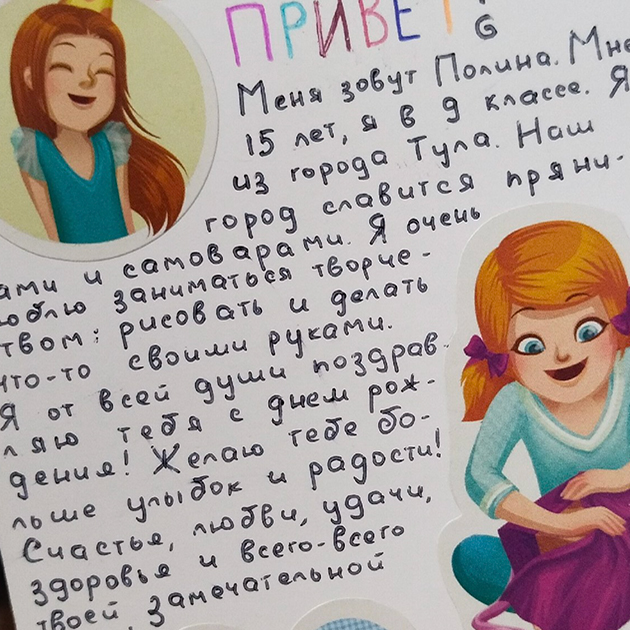 ПРИВЕТ
G
Меня зовут Полина. Мне
15 лет, я в 9 классе. Я
из города Тула. Наш
город славится пряни-
ами и самоварами. Я очень
юблю заниматься творче-
твом: рисовать и делать
что-то своими руками.
Я от всей души поздрав-
ляю тебя с днем рож-
дения! Желаю тебе бо-
льше улыбок и радости!
Счастья, любви, удачи,
здоровья и всего-всего
твоей замечательной